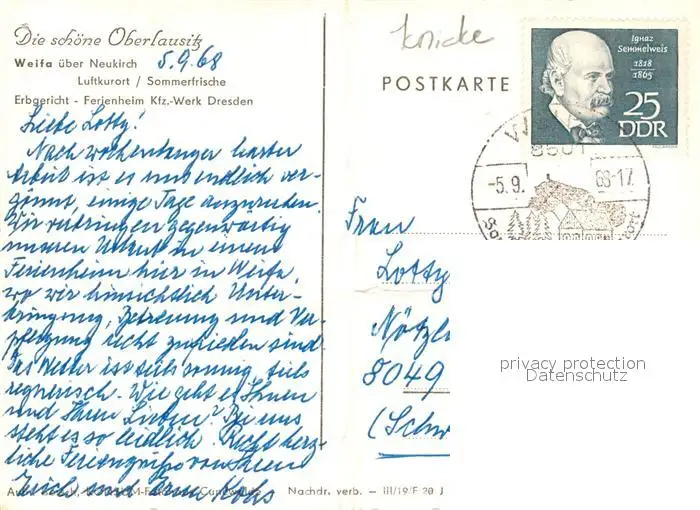 Die schöne Oberlausitz
Weifa über Neukirch 5.9.68
Luftkurort / Sommerfrische
Erbgericht - Ferienheim Kfz.-Werk Dresden
Liebe Lotty!
Nach wochenlanger harter
Arbeit ist es uns endlich ver-
gönnt, einige Tage auszuruhen.
Wir verbringen gegenwärtig
unseren Urlaub in einem
Ferienheim hier in Weifa,
wo wir hinsichtlich Unter-
bringung, Betreuung und Ver-
pflegung recht zufrieden sind.
Das Wetter ist teils sonnig, teils
regnerisch. Wie geht es Ihnen
und Ihren Lieben? Bei uns
steht es so leidlich. Recht herz-
liche Feriengrüße von Ihrem
Erich und Erna
Nachdr. verb. — III/19/F 20 J
knicke
POSTKARTE
Ignaz
Semmelweis
1818
1865
25
DDR
8501
-5.9. 68-17
Frau
Lotty
8049
(Schw
privacy protection
Datenschutz